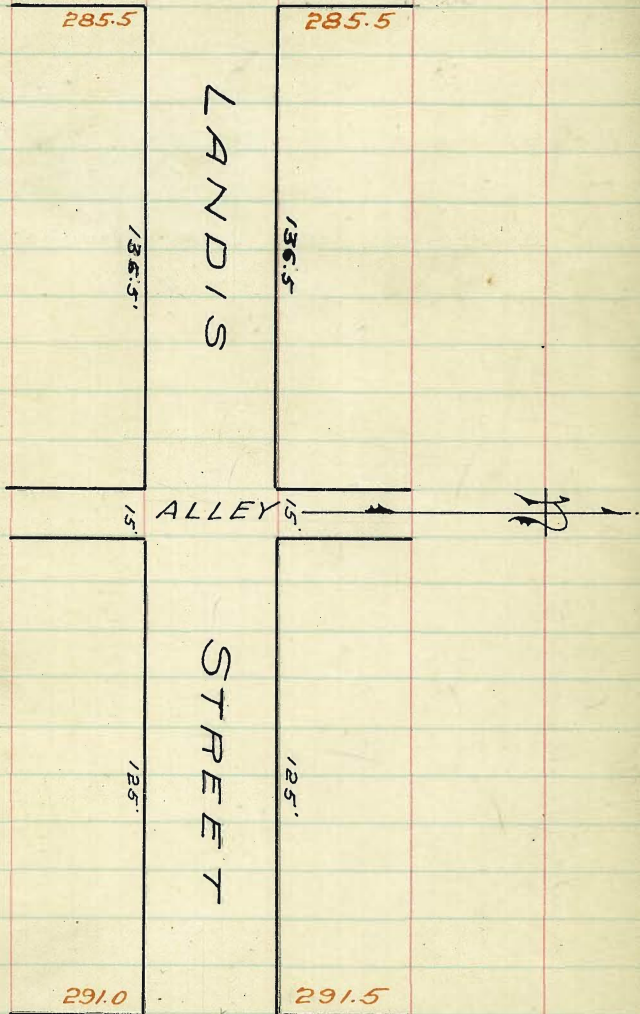 285.5 285.5
LANDIS
136.5'
136.5
15' ALLEY 15'
STREET
125'
125'
291.0 291.5